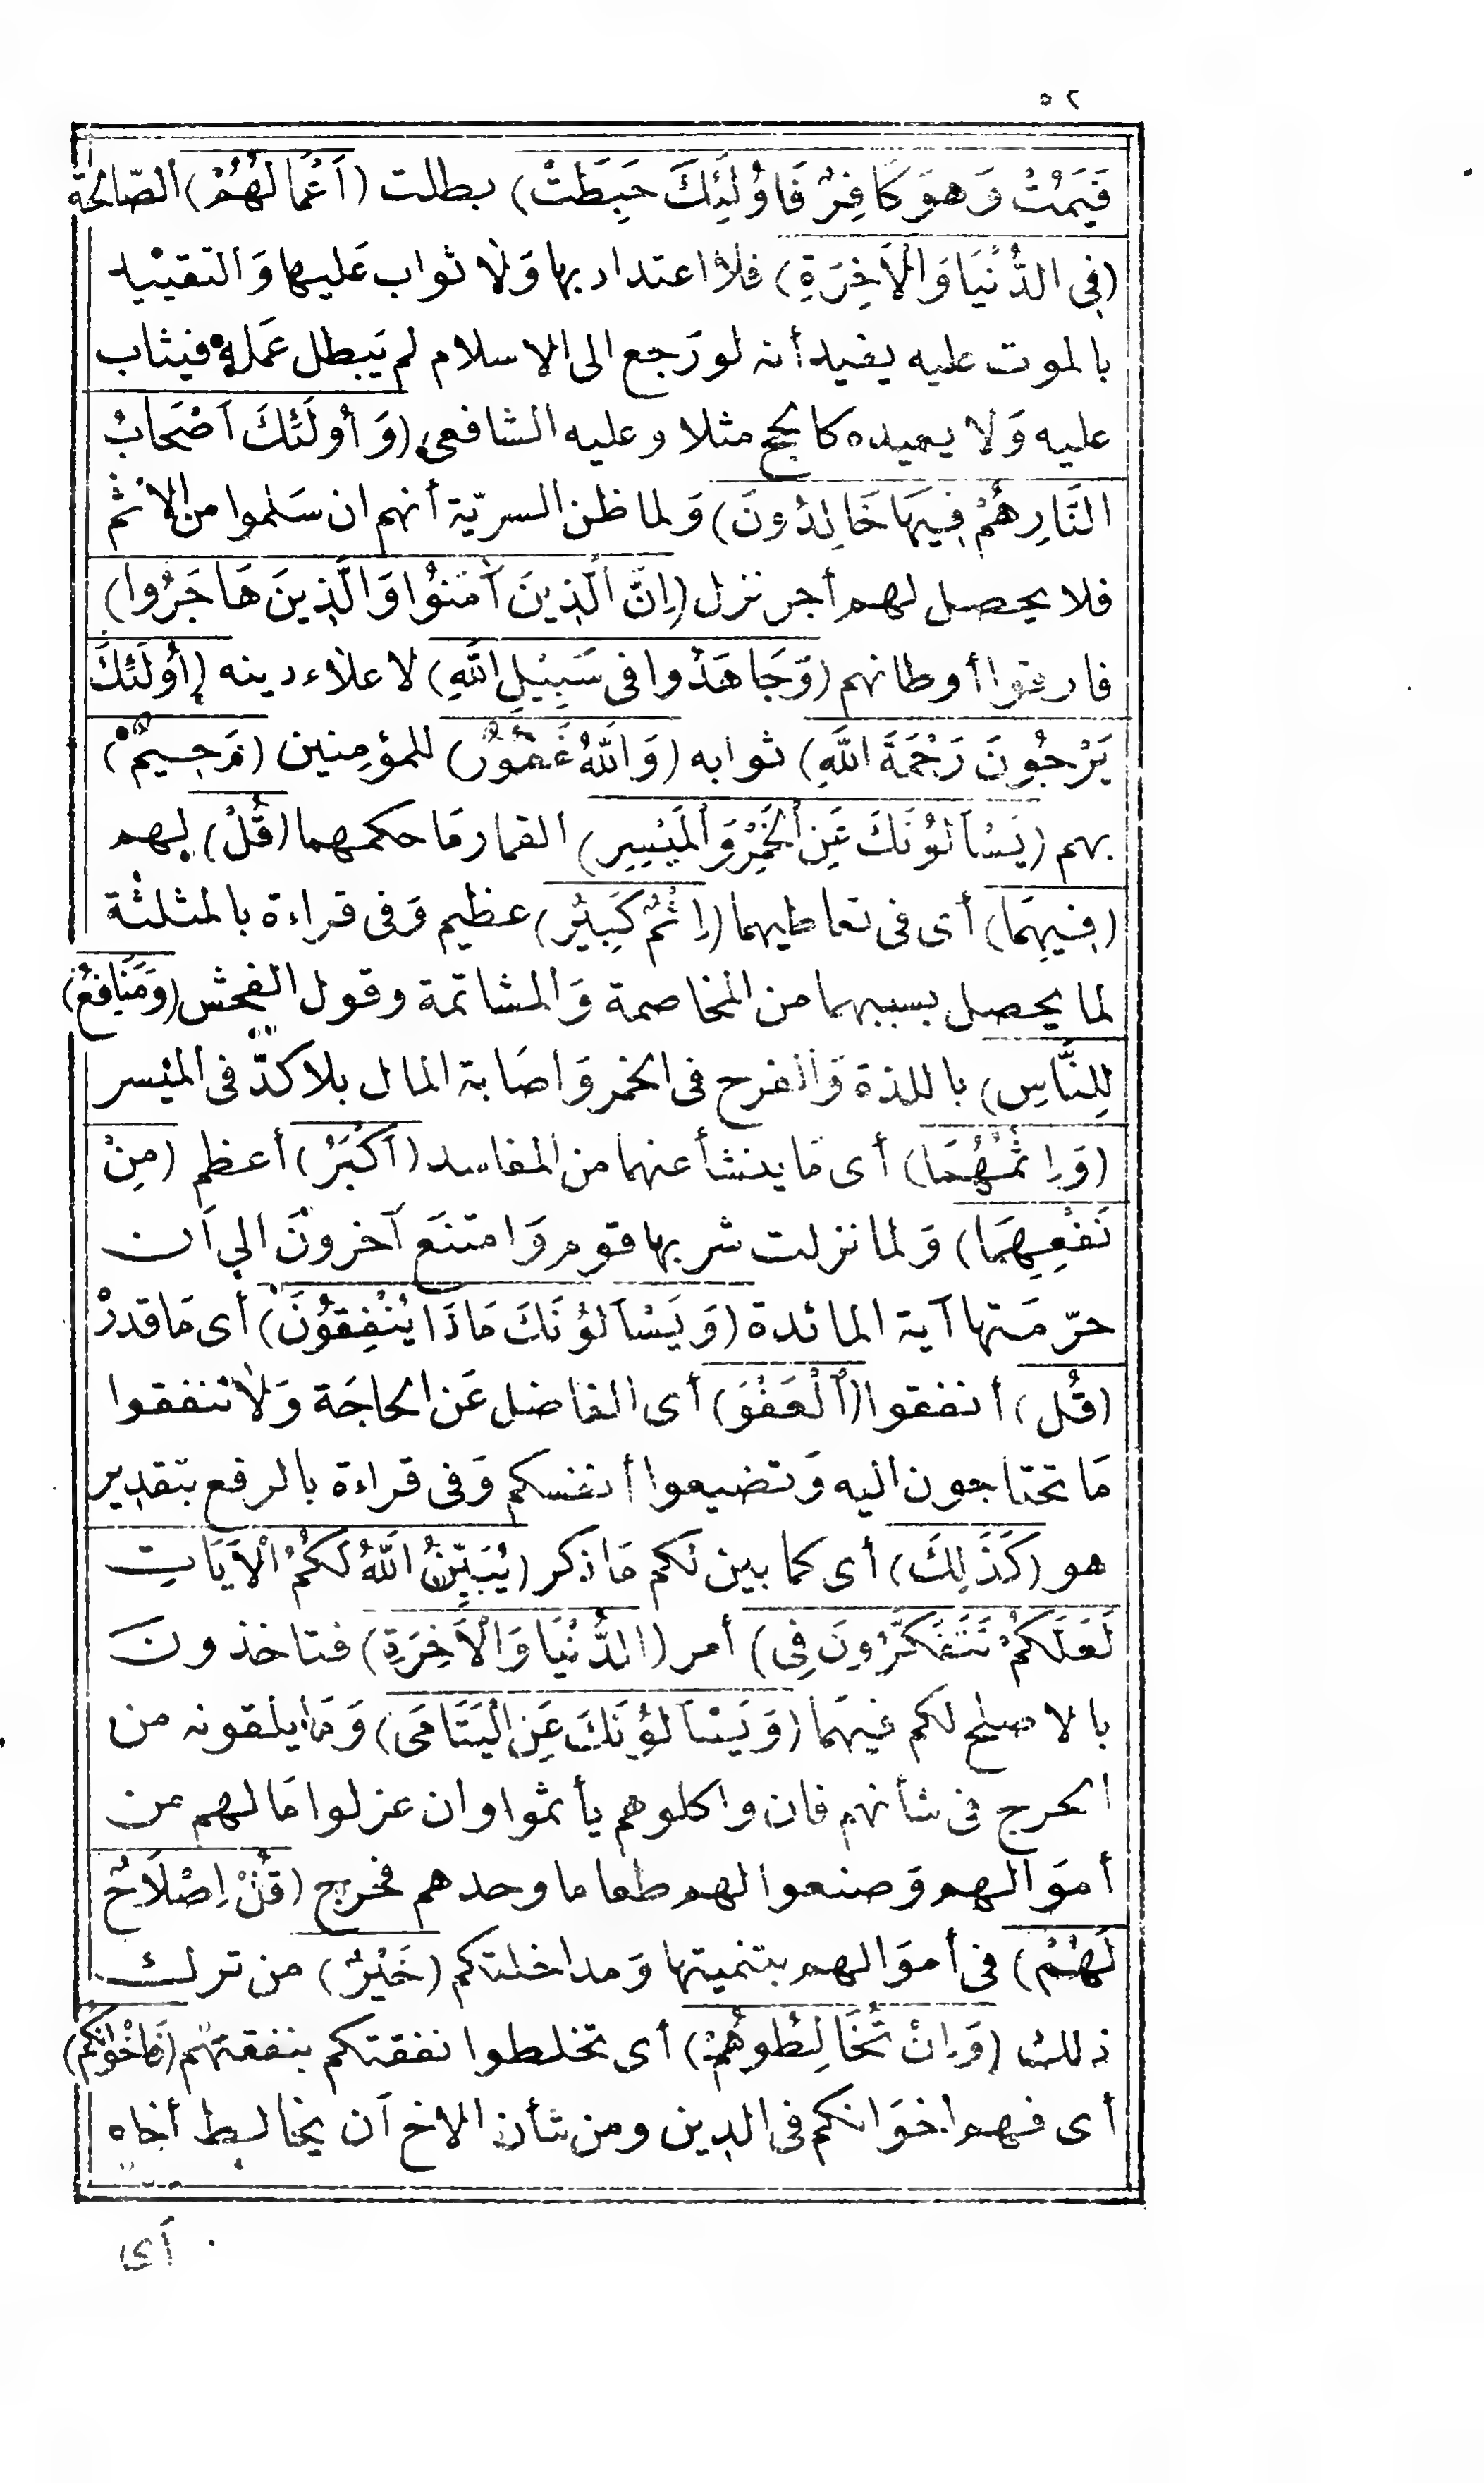 ٥٢
فَيَمُتْ وَهوَ كَافِرٌ فَاُولَٰئِكَ حَبِطَتْ) بطلت (اَعْمَالُهُمْ) الصّالحة
(فِي الدُّنْيَا وَالْاَخِرَةِ) فلا اعتداد بها وَلا ثواب عَليها وَالتقييد
بالموت عليه يفيد أنه لو رَجع الى الاسلام لم يَبطل عَمَله فيثاب
عليه وَلا يعيده كالحج مثلا وعليه الشافعي (وَأُولَٰئِكَ اَصْحَابُ
النَّارِ هُمْ فِيهَا خَالِدُونَ) وَلما ظن السريّة أنهم ان سَلموا من الاثم
فلا يحصل لهم أجر نزل (اِنَّ الَّذِينَ آمَنُوا وَالَّذِينَ هَاجَرُوا)
فارقوا أوطانهم (وَجَاهَدُوا فى سَبِيْلِ اللَّهِ) لاعلاء دينه (أُولَٰئِكَ
يَرْجُونَ رَحْمَةَ اللَّهِ) ثوابه (وَاللَّهُ غَفُورٌ) للمؤمنين (رَحِيمٌ)
بهم (يَسْاَلُونَكَ عَنِ الْخَمْرِ وَالْمَيْسِرِ) القمار مَا حكمهما (قُلْ) لهم
(فِيهِمَا) أى فى تعاطيهما (اِثْمٌ كَبِيْرٌ) عظيم وَفى قراءة بالمثلثة
لما يحصل بسببهما من المخاصمة وَالمشاتمة وقول الفحش (وَمَنَافِعُ)
لِلنَّاسِ) باللذة وَالفرح فى الخمر وَاصَابة المال بلا كدّ فى الميْسر
(وَاِثْمُهُمَا) أى مَا ينشأ عنهما من المفاسد (اَكْبَرُ) أعظم (مِنْ
نَفْعِهِمَا) وَلما نزلت شربها قوم وَامتنَعَ آخرونَ الى اَن
حرّمَتها آية المائدة (وَيَسْاَلُونَكَ مَاذَا يُنْفِقُونَ) أى مَا قدرْ
(قُل) أنفقوا (الْعَفْوَ) أى الفاضل عَن الحاجَة وَلا تنفقوا
مَا تحتاجون اليه وَتضيعوا أنفسكم وَفى قراءة بالرفع بتقدير
هو (كَذَٰلِكَ) أى كما بين لكم مَا ذكر (يُبَيِّنُ اللَّهُ لَكُمُ الْاَيَاتِ
لَعَلَّكُمْ تَتَفَكَّرُونَ فِى) أمر (الدُّنْيَا وَالْاَخِرَةِ) فتاخذونَ
بالاصلح لكم فيهمَا (وَيَسْاَلُونَكَ عَنِ الْيَتَامَى) وَمَا يلقونه من
الحرج فى شأنهم فان واكلوهم يأثموا وان عزلوا مَا لهم من
أموَالهم وَصنعوا لهم طعاما وحدهم فحرج (قُلْ اِصْلَاحٌ
لَهُمْ) فى أموَالهم بتنميتها وَمداخلتكم (خَيْرٌ) من ترك
ذلك (وَاِنْ تُخَالِطُوهُمْ) أى تخلطوا نفقتكم بنفقتهم (فَاِخْوَانُكُمْ)
أى فهم اخوَانكم فى الدين ومن شأن الاخ اَن يخالط أخاه
أى